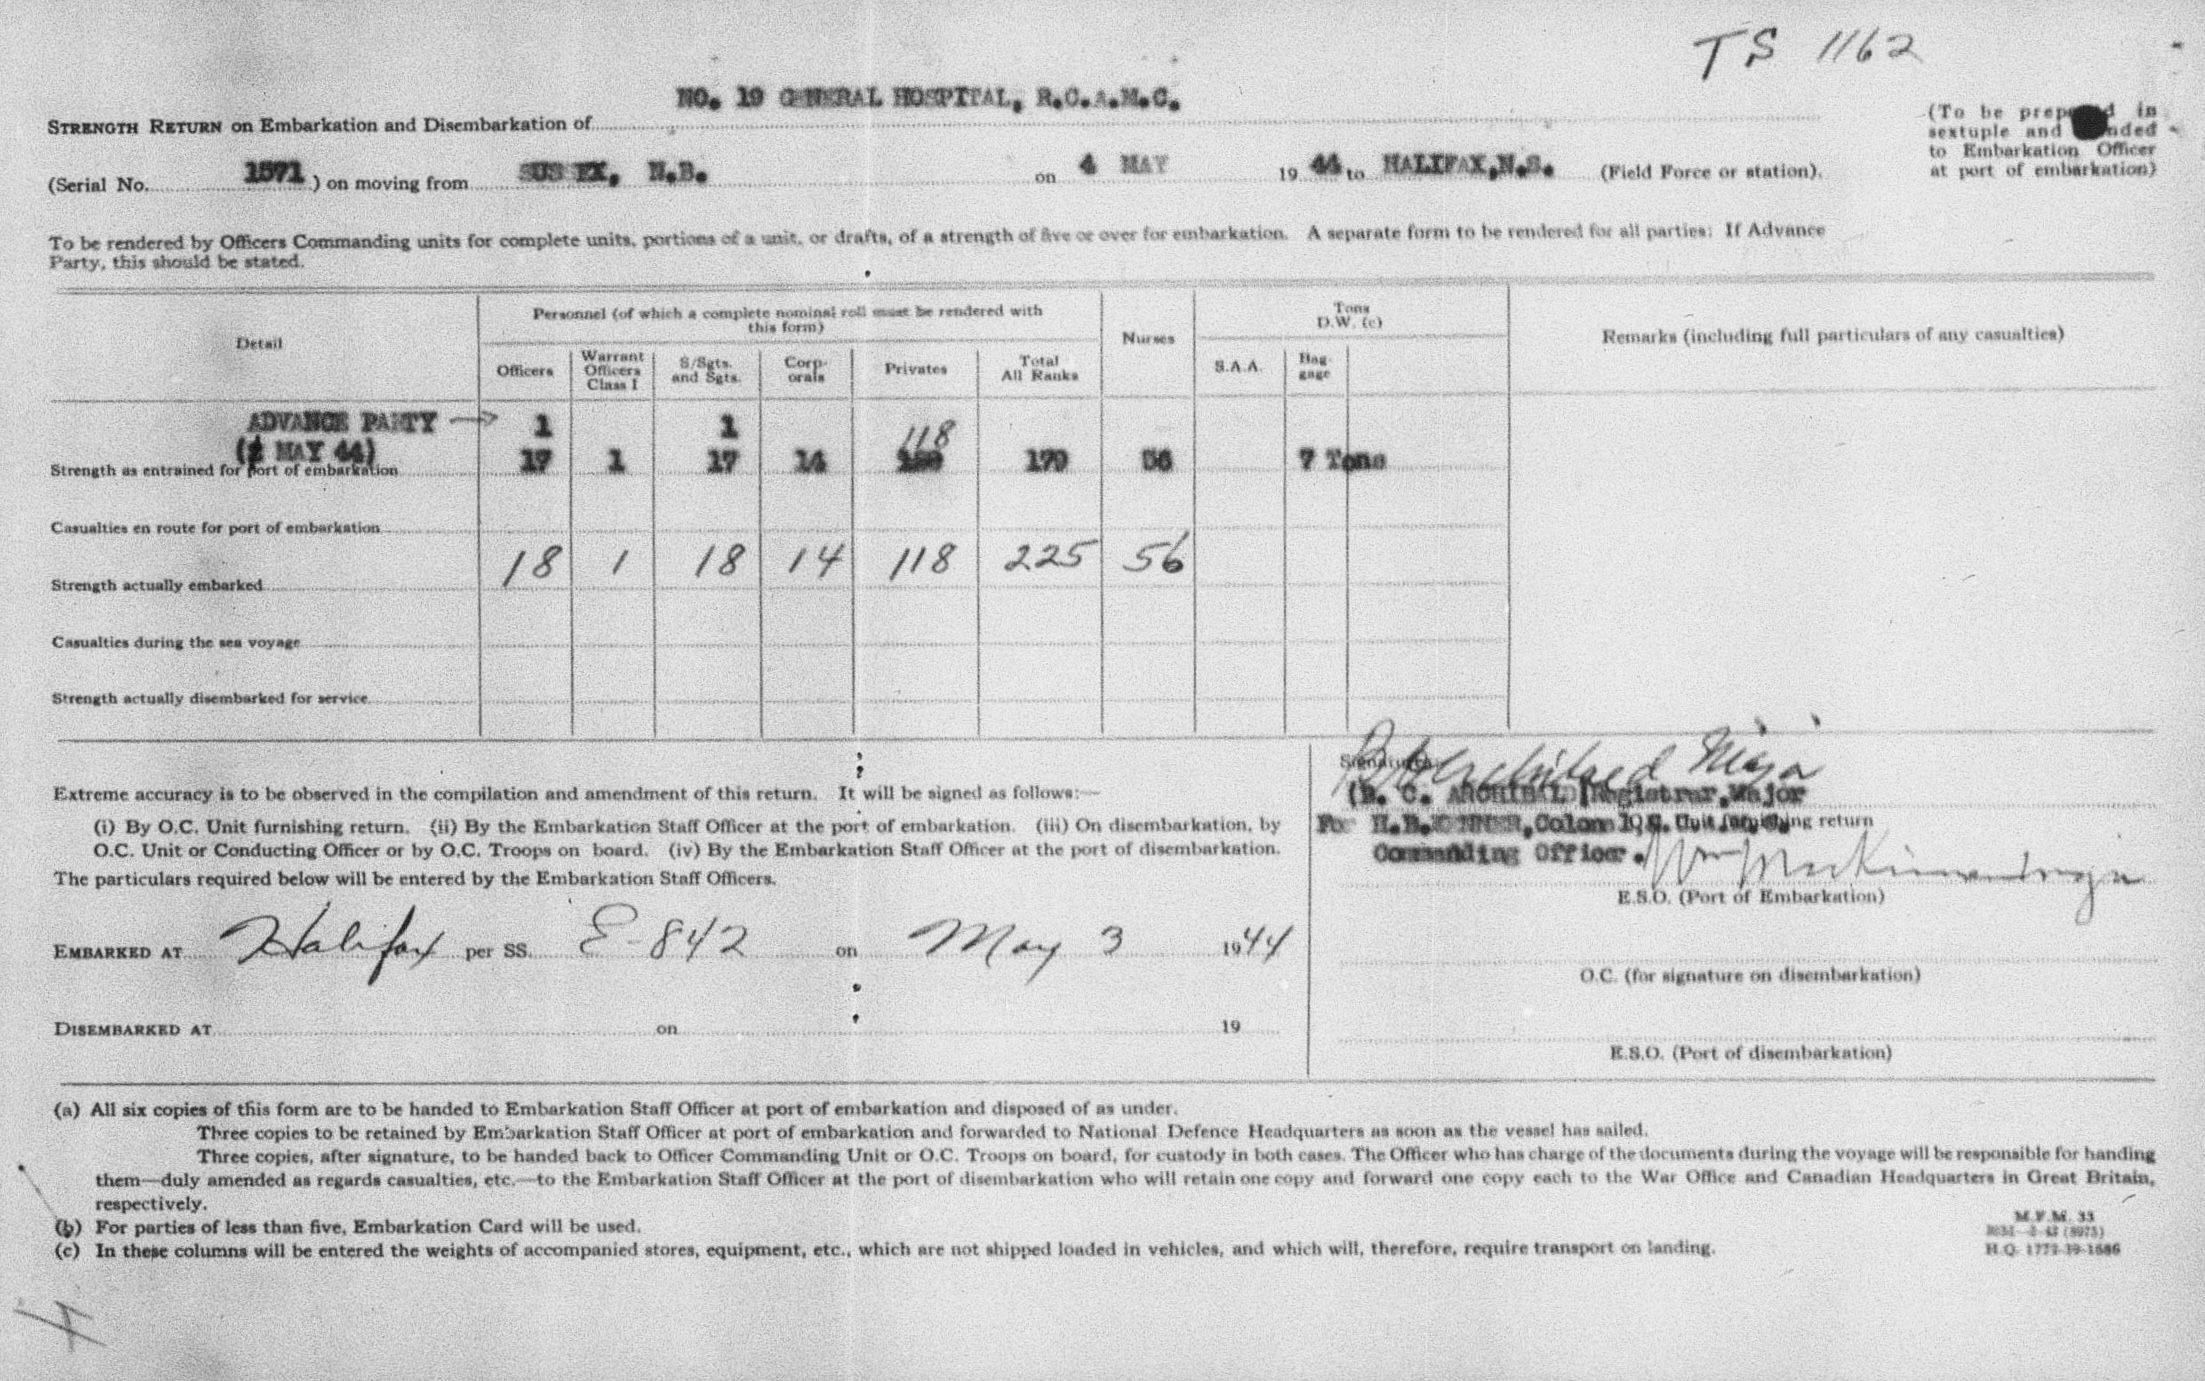 TS 1162
NO. 19 GENERAL HOSPITAL, R.C.A.M.C.
STRENGTH RETURN on Embarkation and Disembarkation of
(Serial No. 1571 ) on moving from SUSSEX, N.B. on 4 MAY 19 44 to HALIFAX,N.S. (Field Force or station).
(To be prepared in
sextuple and handed
to Embarkation Officer
at port of embarkation)
To be rendered by Officers Commanding units for complete units, portions of a unit, or drafts, of a strength of five or over for embarkation. A separate form to be rendered for all parties: If Advance
Party, this should be stated.
Detail
Personnel (of which a complete nominal roll must be rendered with
this form)
Officers
Warrant
Officers
Class I
S/Sgts.
and Sgts.
Corp-
orals
Privates
Total
All Ranks
Nurses
Tons
D.W. (c)
S.A.A.
Bag-
gage
Remarks (including full particulars of any casualties)
ADVANCE PARTY → 1 1
( MAY 44) 118
Strength as entrained for port of embarkation 17 1 17 14 170 56 7 Tons
Casualties en route for port of embarkation
Strength actually embarked 18 1 18 14 118 225 56
Casualties during the sea voyage
Strength actually disembarked for service
Extreme accuracy is to be observed in the compilation and amendment of this return. It will be signed as follows:—
(i) By O.C. Unit furnishing return. (ii) By the Embarkation Staff Officer at the port of embarkation. (iii) On disembarkation, by
O.C. Unit or Conducting Officer or by O.C. Troops on board. (iv) By the Embarkation Staff Officer at the port of disembarkation.
The particulars required below will be entered by the Embarkation Staff Officers.
EMBARKED AT Halifax per SS. E-842 on May 3 1944
DISEMBARKED AT on 19
Signature
Archibald Major
(B. C. ARCHIBALD)Registrar,Major
For H.B. Colonel, O.C. Unit furnishing return
Commanding Officer.
E.S.O. (Port of Embarkation)
O.C. (for signature on disembarkation)
E.S.O. (Port of disembarkation)
(a) All six copies of this form are to be handed to Embarkation Staff Officer at port of embarkation and disposed of as under.
Three copies to be retained by Embarkation Staff Officer at port of embarkation and forwarded to National Defence Headquarters as soon as the vessel has sailed.
Three copies, after signature, to be handed back to Officer Commanding Unit or O.C. Troops on board, for custody in both cases. The Officer who has charge of the documents during the voyage will be responsible for handing
them—duly amended as regards casualties, etc.—to the Embarkation Staff Officer at the port of disembarkation who will retain one copy and forward one copy each to the War Office and Canadian Headquarters in Great Britain,
respectively.
(b) For parties of less than five, Embarkation Card will be used.
(c) In these columns will be entered the weights of accompanied stores, equipment, etc., which are not shipped loaded in vehicles, and which will, therefore, require transport on landing.
M.F.M. 33
H.Q. 1772-39-1686